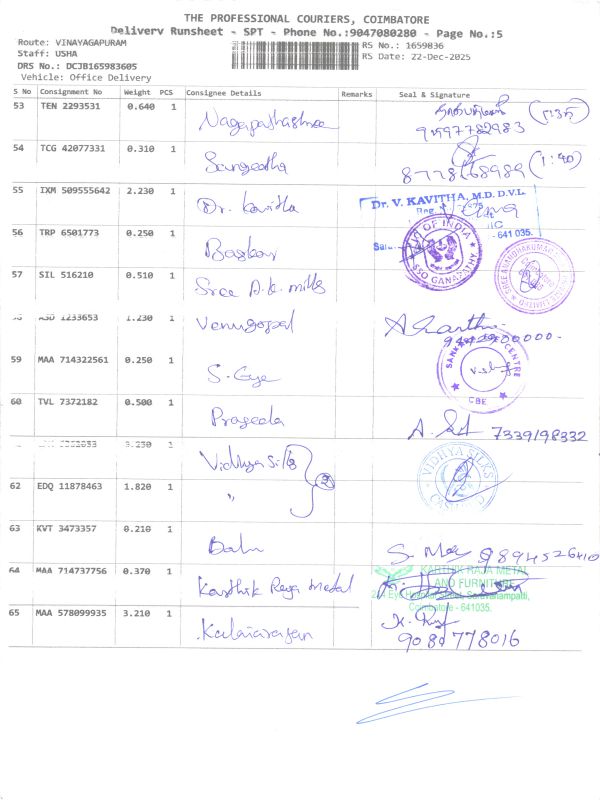 THE PROFESSIONAL COURIERS, COIMBATORE
Delivery Runsheet - SPT - Phone No.:9047080280 - Page No.:5
Route: VINAYAGAPURAM
RS No.: 1659836
Staff: USHA
RS Date: 22-Dec-2025
DRS No.: DCJB165983605
Vehicle: Office Delivery
S No Consignment No Weight PCS Consignee Details Remarks Seal & Signature
53 TEN 2293531 0.640 1
91997782983
54 TCG 42077331 0.310 1 Sangeetha
(1:40)
55 IXM 509555642 2.230 1 Dr. Kavitha
Dr. V. KAVITHA, M.D. D.V.L.
- 641 035.
56 TRP 6501773 0.250 1 Baskar
OF INDIA
SSO GANAPATHY
57 SIL 516210 0.510 1 Sree A.K. mills
1233653 1.230 1 Venugopal
59 MAA 714322561 0.250 1
CENTRE
CBE
60 TVL 7372182 0.500 1 Prageeda
7339198332
3.250 1 Vidhya Silks
VIDHYA SILKS
2
62 EDQ 11878463 1.820 1 "
63 KVT 3473357 0.210 1
9894526410
64 MAA 714737756 0.370 1 Karthik Raja Metal
KARTHIK RAJA METAL
AND FURNITURE
Saravanampatti,
Coimbatore - 641035.
65 MAA 578099935 3.210 1 Kalaiarasan
9080778016